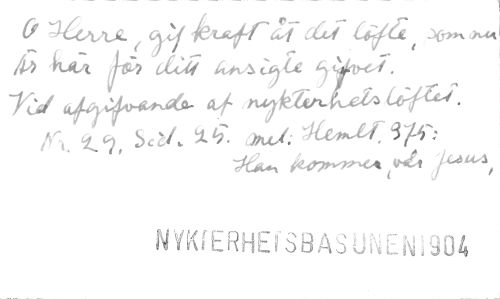 O Herre, gif kraft åt det löfte, som nu
Är här för ditt ansigte gifvet.
Vid afgifvande af nykterhetslöftet.
Nr. 29. Sid. 25. mel: Hemlt. 375:
Han kommer, vår Jesus,
NYKTERHETSBASUNEN 1904